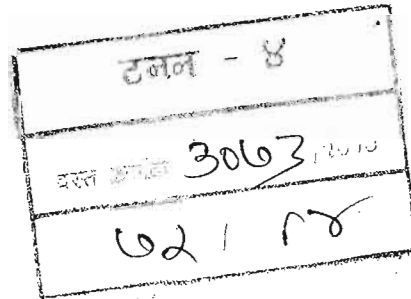 टनन - ४
दस्त क्रमांक ३०७३/२०१०
७२ / ८४